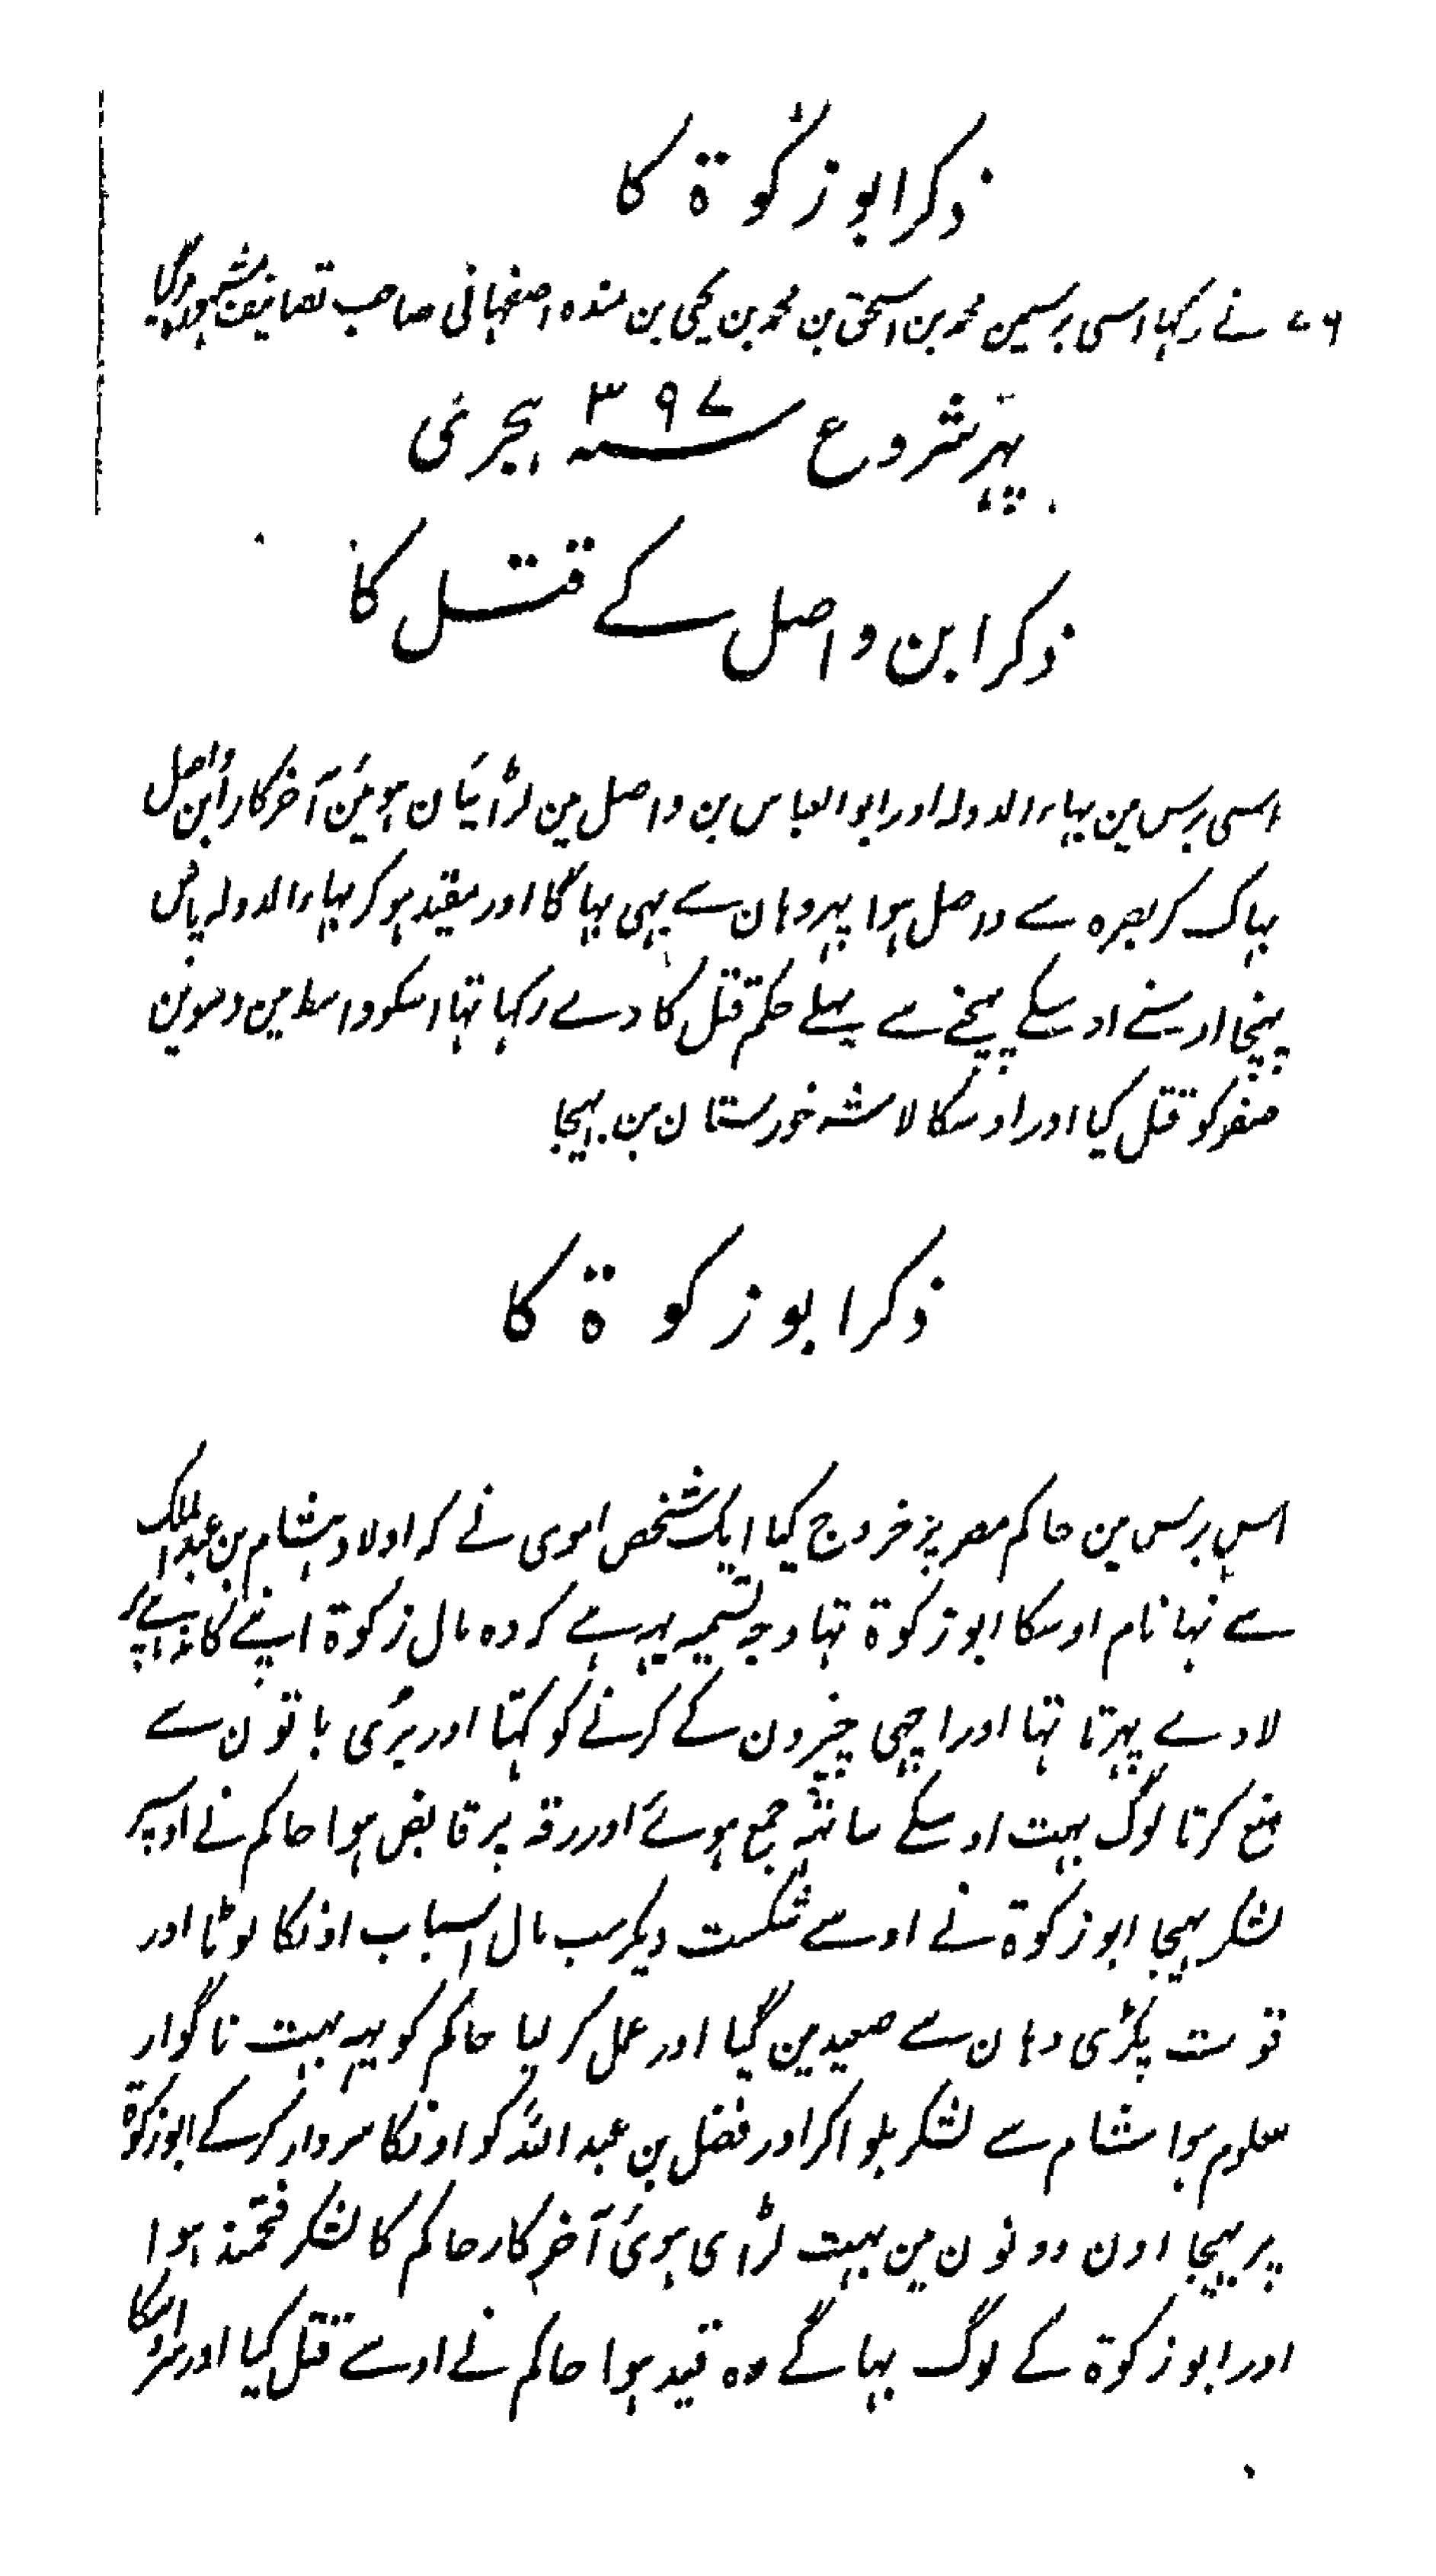 ذکر ابو زکوة کا
نے رکہا اسی برسمین محمد بن اسحٰق بن محمد بن یحیی بن مندہ اصفہانی صاحب تصانیف مشہور مرگیا
پہر شروع سنہ ۳۹۷ ہجری
ذکر ابن واصل کے قتل کا
اسی برس مین بہاء الدولہ اور ابو العباس بن واصل مین لڑائیان ہوئین آخر کار ابن واصل
بہاک کر بصرہ سے واصل ہوا پہر وہان سے بہی بہاگا اور مقید ہوکر بہاء الدولہ پاس
پہنچا اوسنے اوسکے پہنچنے سے پہلے حکم قتل کا دے رکہا تہا اسکو واسط مین دسوین
صفر کو قتل کیا اور اوسکا لاشہ خورستان مین بہیجا
ذکر ابو زکوة کا
اسی برس مین حاکم مصر پر خروج کیا ایک شخص اموی نے کہ اولاد ہشام بن عبد الملک
سے تہا نام اوسکا ابو زکوة تہا وجہ تسمیہ یہہ ہے کہ وہ مال زکوة اپنے کاندہے پر
لادے پہرتا تہا اور اچہی چیزون کے کرنے کو کہتا اور بری باتون سے
منع کرتا لوگ بہت اوسکے ساتہہ جمع ہوئے اور رقہ پر قابض ہوا حاکم نے اوسپر
لشکر بہیجا ابو زکوة نے اوسے شکست دیکر سب مال اسباب اونکا لوٹا اور
قوت پکڑی وہان سے صعید مین گیا اور عمل کر لیا حاکم کو یہہ بہت ناگوار
معلوم ہوا شام سے لشکر بلوا کر اور فضل بن عبد اللہ کو اونکا سردار کرکے ابو زکوة
پر بہیجا اون دونون مین بہت لڑای ہوئی آخر کار حاکم کا لشکر فتحمند ہوا
اور ابو زکوة کے لوگ بہاگے وہ قید ہوا حاکم نے اوسے قتل کیا اور سر اوسکا